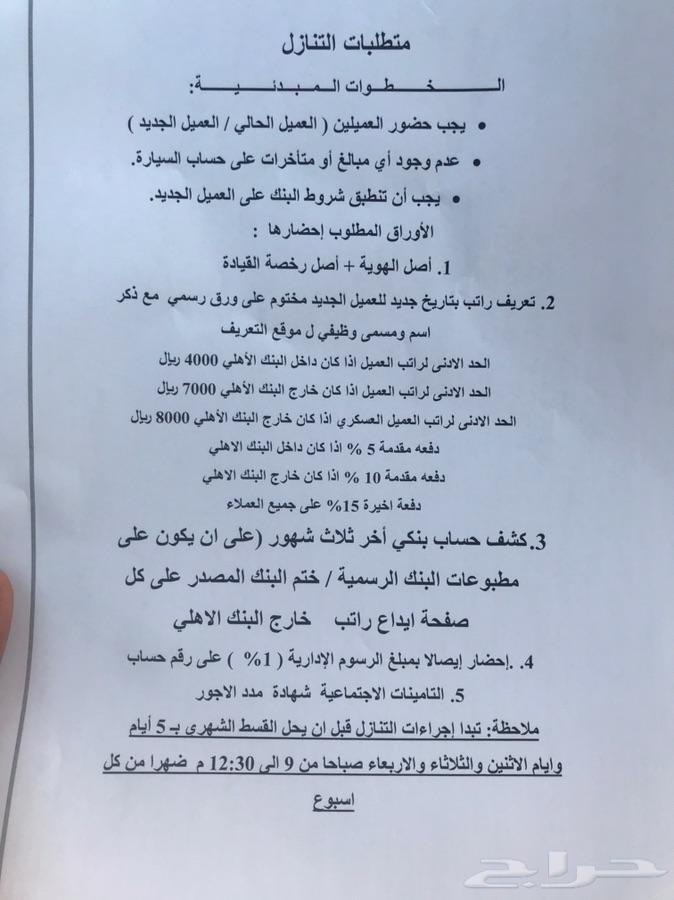 متطلبات التنازل
الـــــــخـــطـــوات الـــمـــبـــدئـــيـــــة:
• يجب حضور العميلين ( العميل الحالي / العميل الجديد )
• عدم وجود أي مبالغ أو متأخرات على حساب السيارة.
• يجب أن تنطبق شروط البنك على العميل الجديد.
الأوراق المطلوب إحضارها :
1. أصل الهوية + أصل رخصة القيادة
2. تعريف راتب بتاريخ جديد للعميل الجديد مختوم على ورق رسمي مع ذكر
اسم ومسمى وظيفي ل موقع التعريف
الحد الادنى لراتب العميل اذا كان داخل البنك الأهلي 4000 ريال
الحد الادنى لراتب العميل اذا كان خارج البنك الأهلي 7000 ريال
الحد الادنى لراتب العميل العسكري اذا كان خارج البنك الأهلي 8000 ريال
دفعه مقدمة 5 % اذا كان داخل البنك الاهلي
دفعه مقدمة 10 % اذا كان خارج البنك الاهلي
دفعة اخيرة 15% على جميع العملاء
3. كشف حساب بنكي أخر ثلاث شهور (على ان يكون على
مطبوعات البنك الرسمية / ختم البنك المصدر على كل
صفحة ايداع راتب خارج البنك الاهلي
4. .إحضار إيصالا بمبلغ الرسوم الإدارية ( 1% ) على رقم حساب
5. التامينات الاجتماعية شهادة مدد الاجور
ملاحظة: تبدا إجراءات التنازل قبل ان يحل القسط الشهري بـ 5 أيام
وايام الاثنين والثلاثاء والاربعاء صباحا من 9 الى 12:30 م ضهرا من كل
اسبوع
حراج